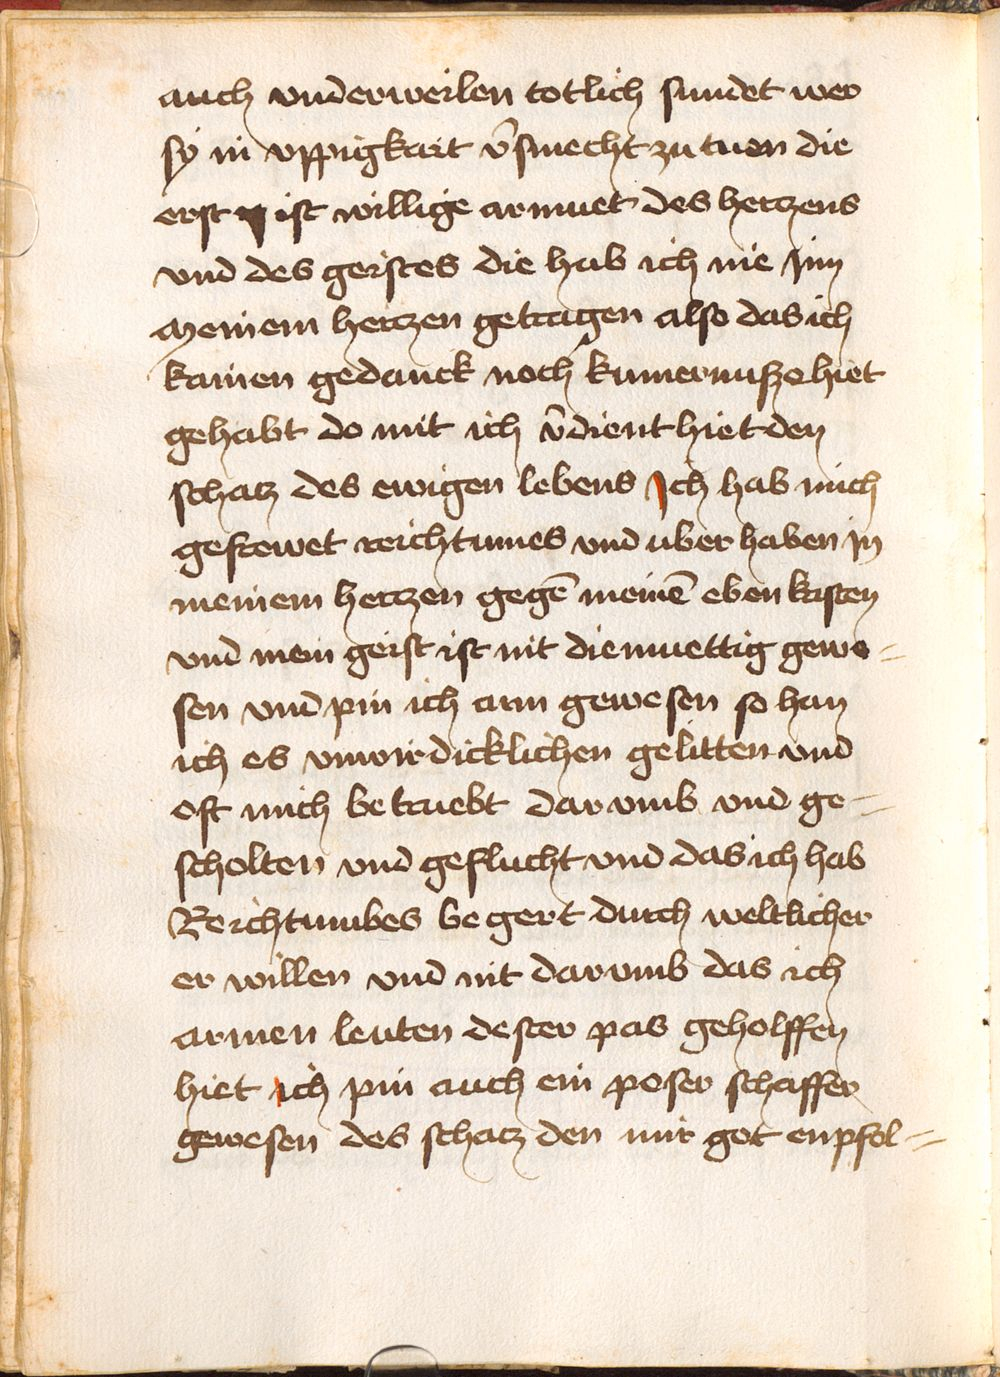 auch vnderweilen totlich sundet wer
sÿ in vppigkait v̄smecht zu tuen die
erst ist willige armuet des hertzens
vnd des geistes die hab ich nie Jnn
meinem hertzen getragen also das ich
kainen gedanck noch kumernusze hiet
gehabt do mit ich v̄dient hiet den
schatz des ewigen lebens Jch hab mich
gefrewet reichtumes vnd uber haben in
meinem hertzen gegē meinē eben kristen
vnd mein geist ist nit diemuettig gewe=
sen vnd pin ich arm gewesen so han
ich es vnwirdicklichen gelitten vnd
oft mich betruebt darvmb vnd ge=
scholten vnd geflucht vnd das ich hab
Reichtumbes begert durch weltlicher
er willen vnd nit darvmb das ich
armen leuten dester pas geholffen
hiet ich pin auch ein poser schaffer
gewesen des schatz den mir got enpfol=